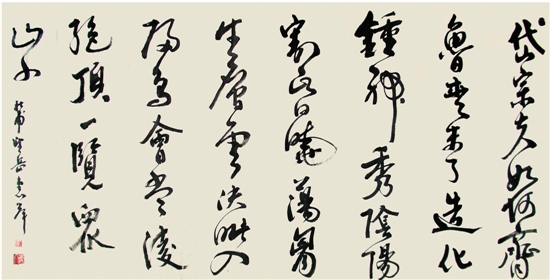 岱宗夫如何齊
魯青未了造化
鍾神秀陰陽
割昏曉蕩胸
生層雲決眥入
歸鳥會當凌
絕頂一覽衆
山小
杜甫望岳